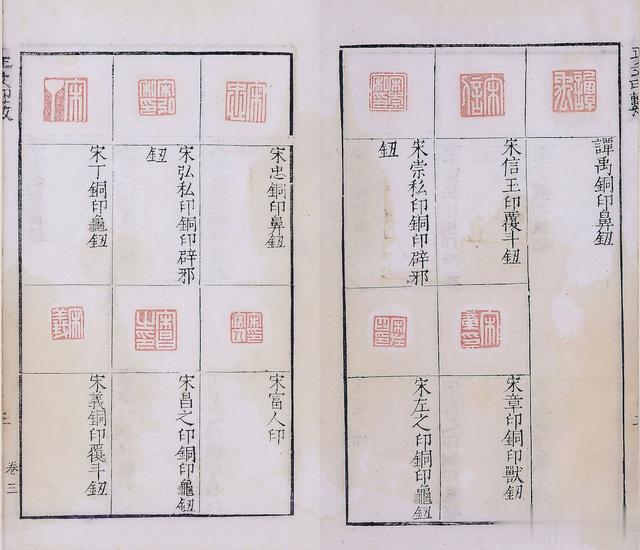 譚禹銅印鼻鈕
宋信王印覆斗鈕
宋崇私印銅印辟邪
鈕
宋章印銅印獸鈕
宋左之印銅印龜鈕
宋忠銅印鼻鈕
宋弘私印銅印辟邪
鈕
宋丁銅印龜鈕
宋富人印
宋昌之印銅印龜鈕
宋義銅印覆斗鈕
卷三